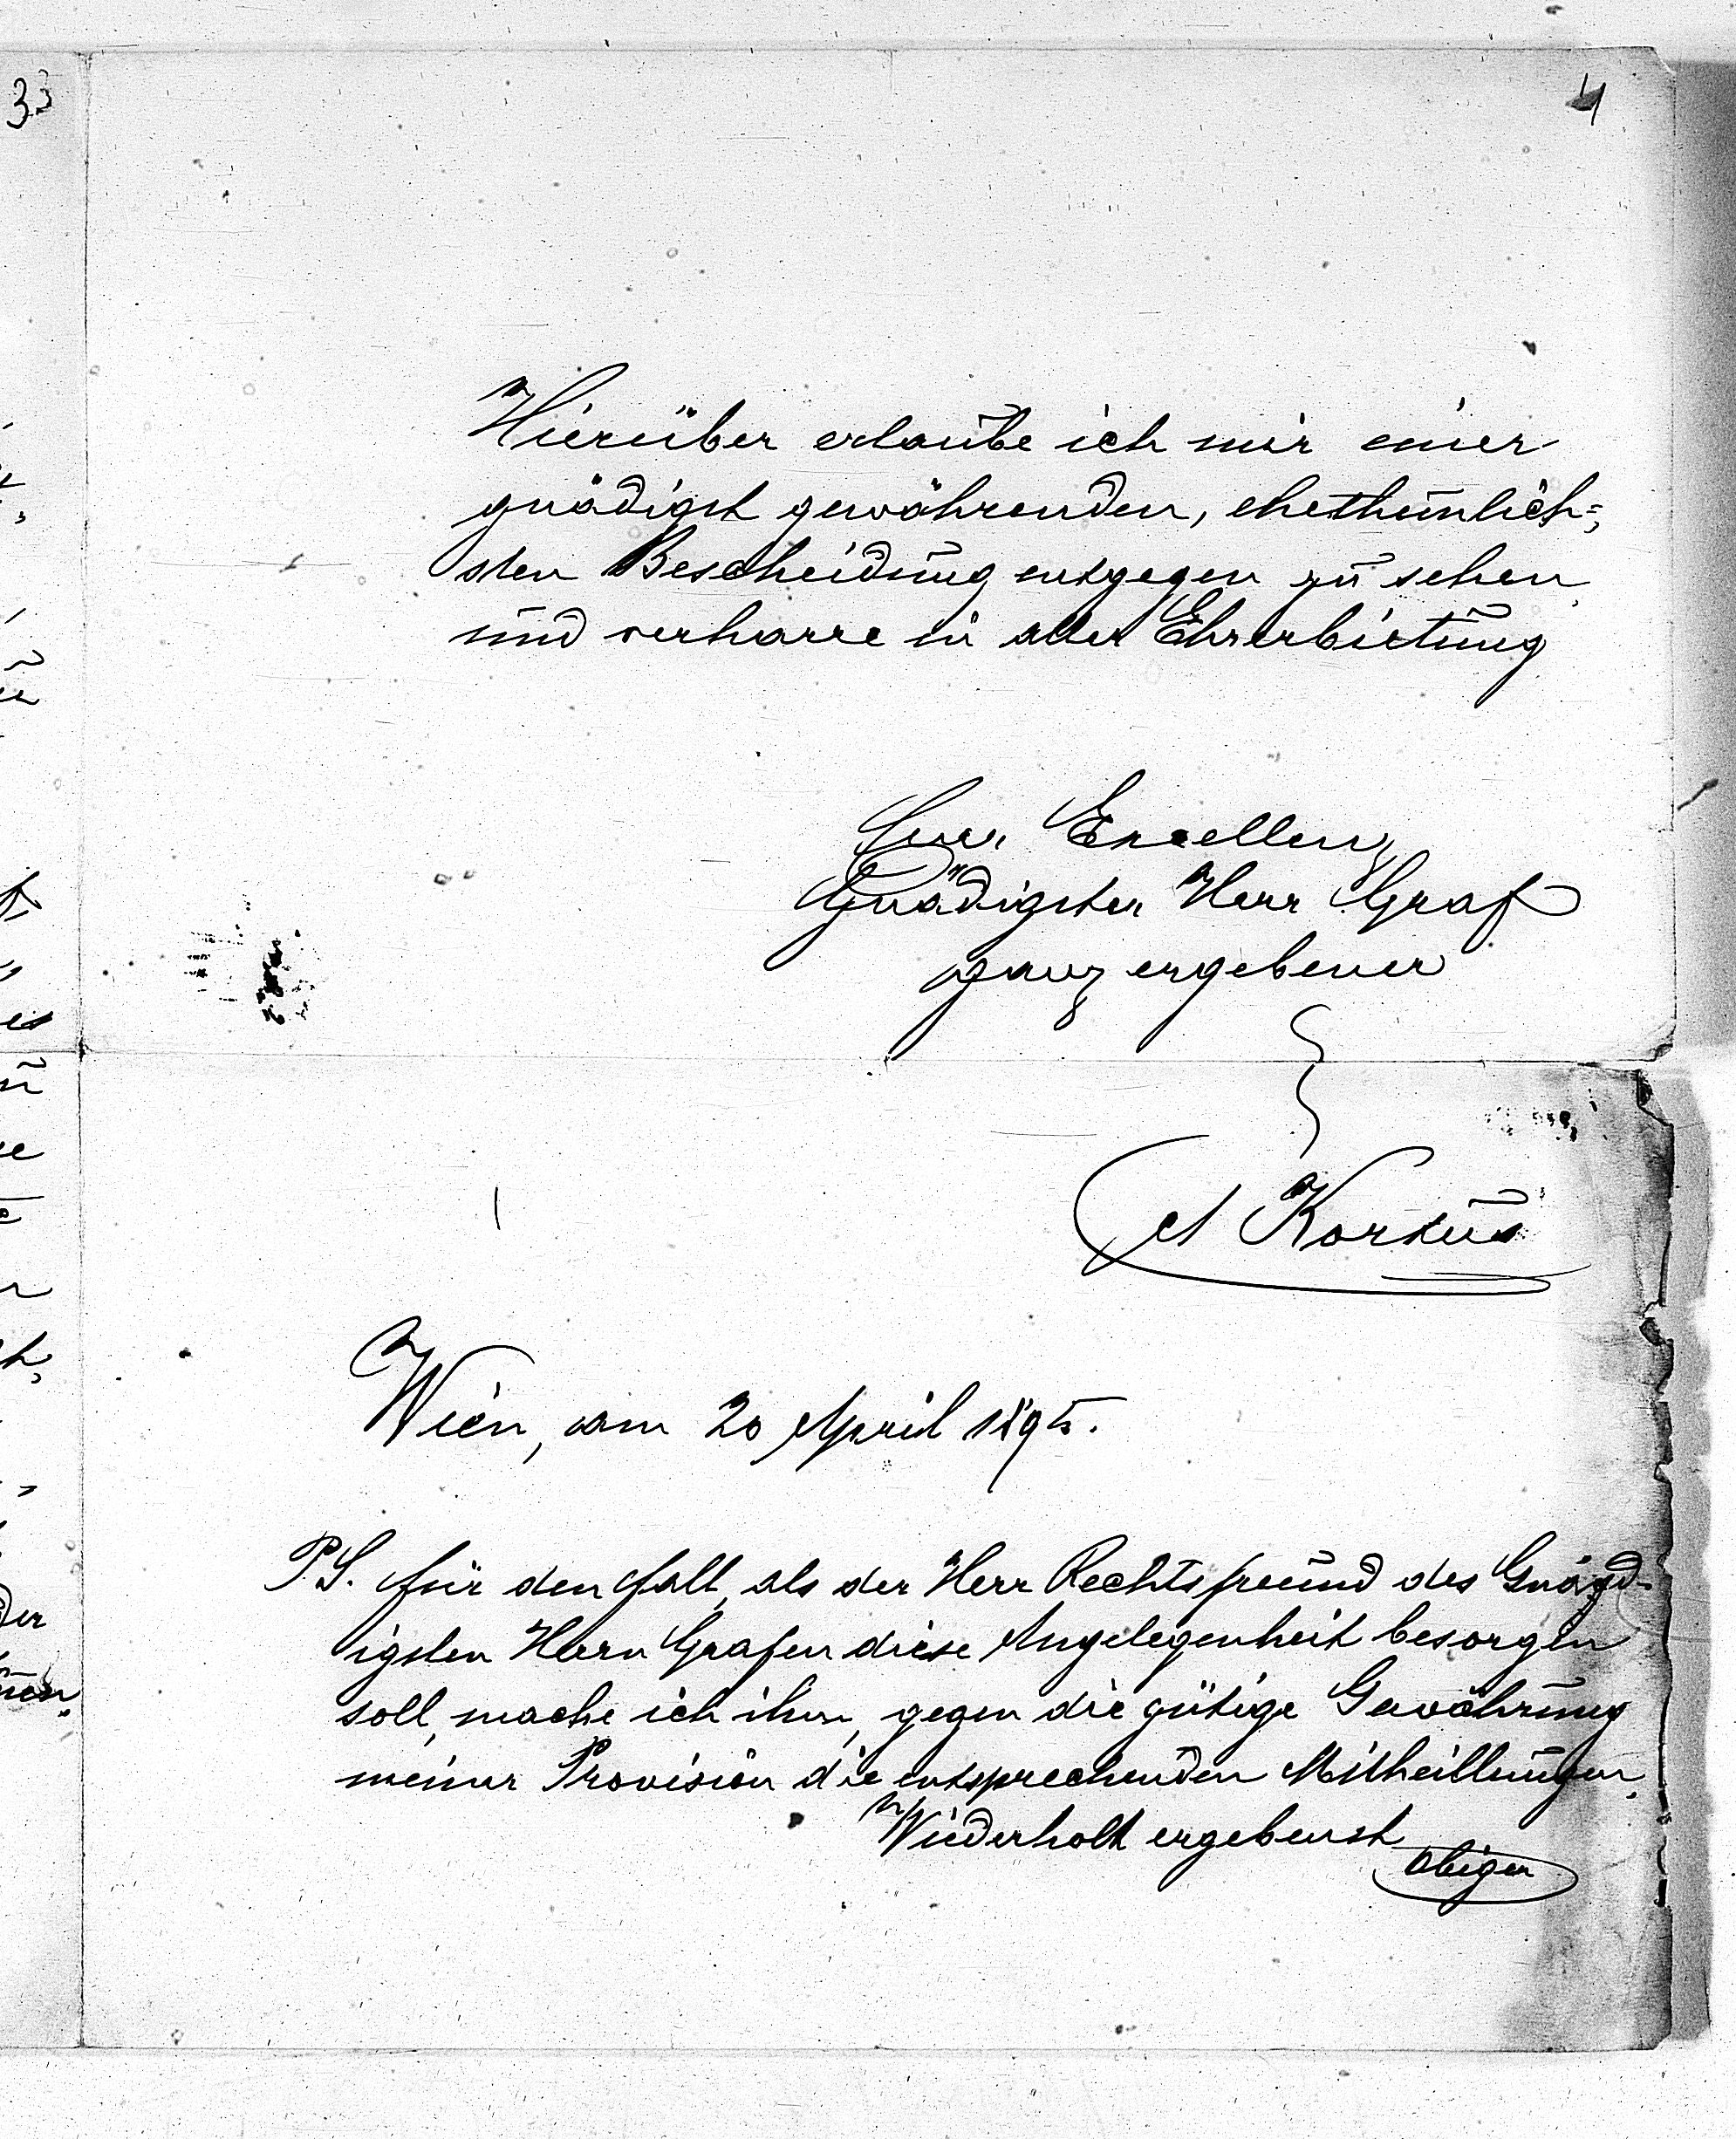 4
Hierüber erlaube ich mir einer
gnädigst gewährenden, ehethunlich=
sten Bescheidung entgegen zu sehen,
und verharre in aller Ehrerbietung
Euer Excellenz
Gnädigster Herr Graf
ganz ergebener
A Korkus
Wien, am 20 April 1895.
P.S. für den Fall, als der Herr Rechtsfreund des Gnäd-
igsten Herrn Grafen diese Angelegenheit besorgen
soll, mache ich ihm, gegen die gütige Gewährung
meiner Provision die entsprechenden Mittheillungen,
Wiederholt ergebenst
Obiger